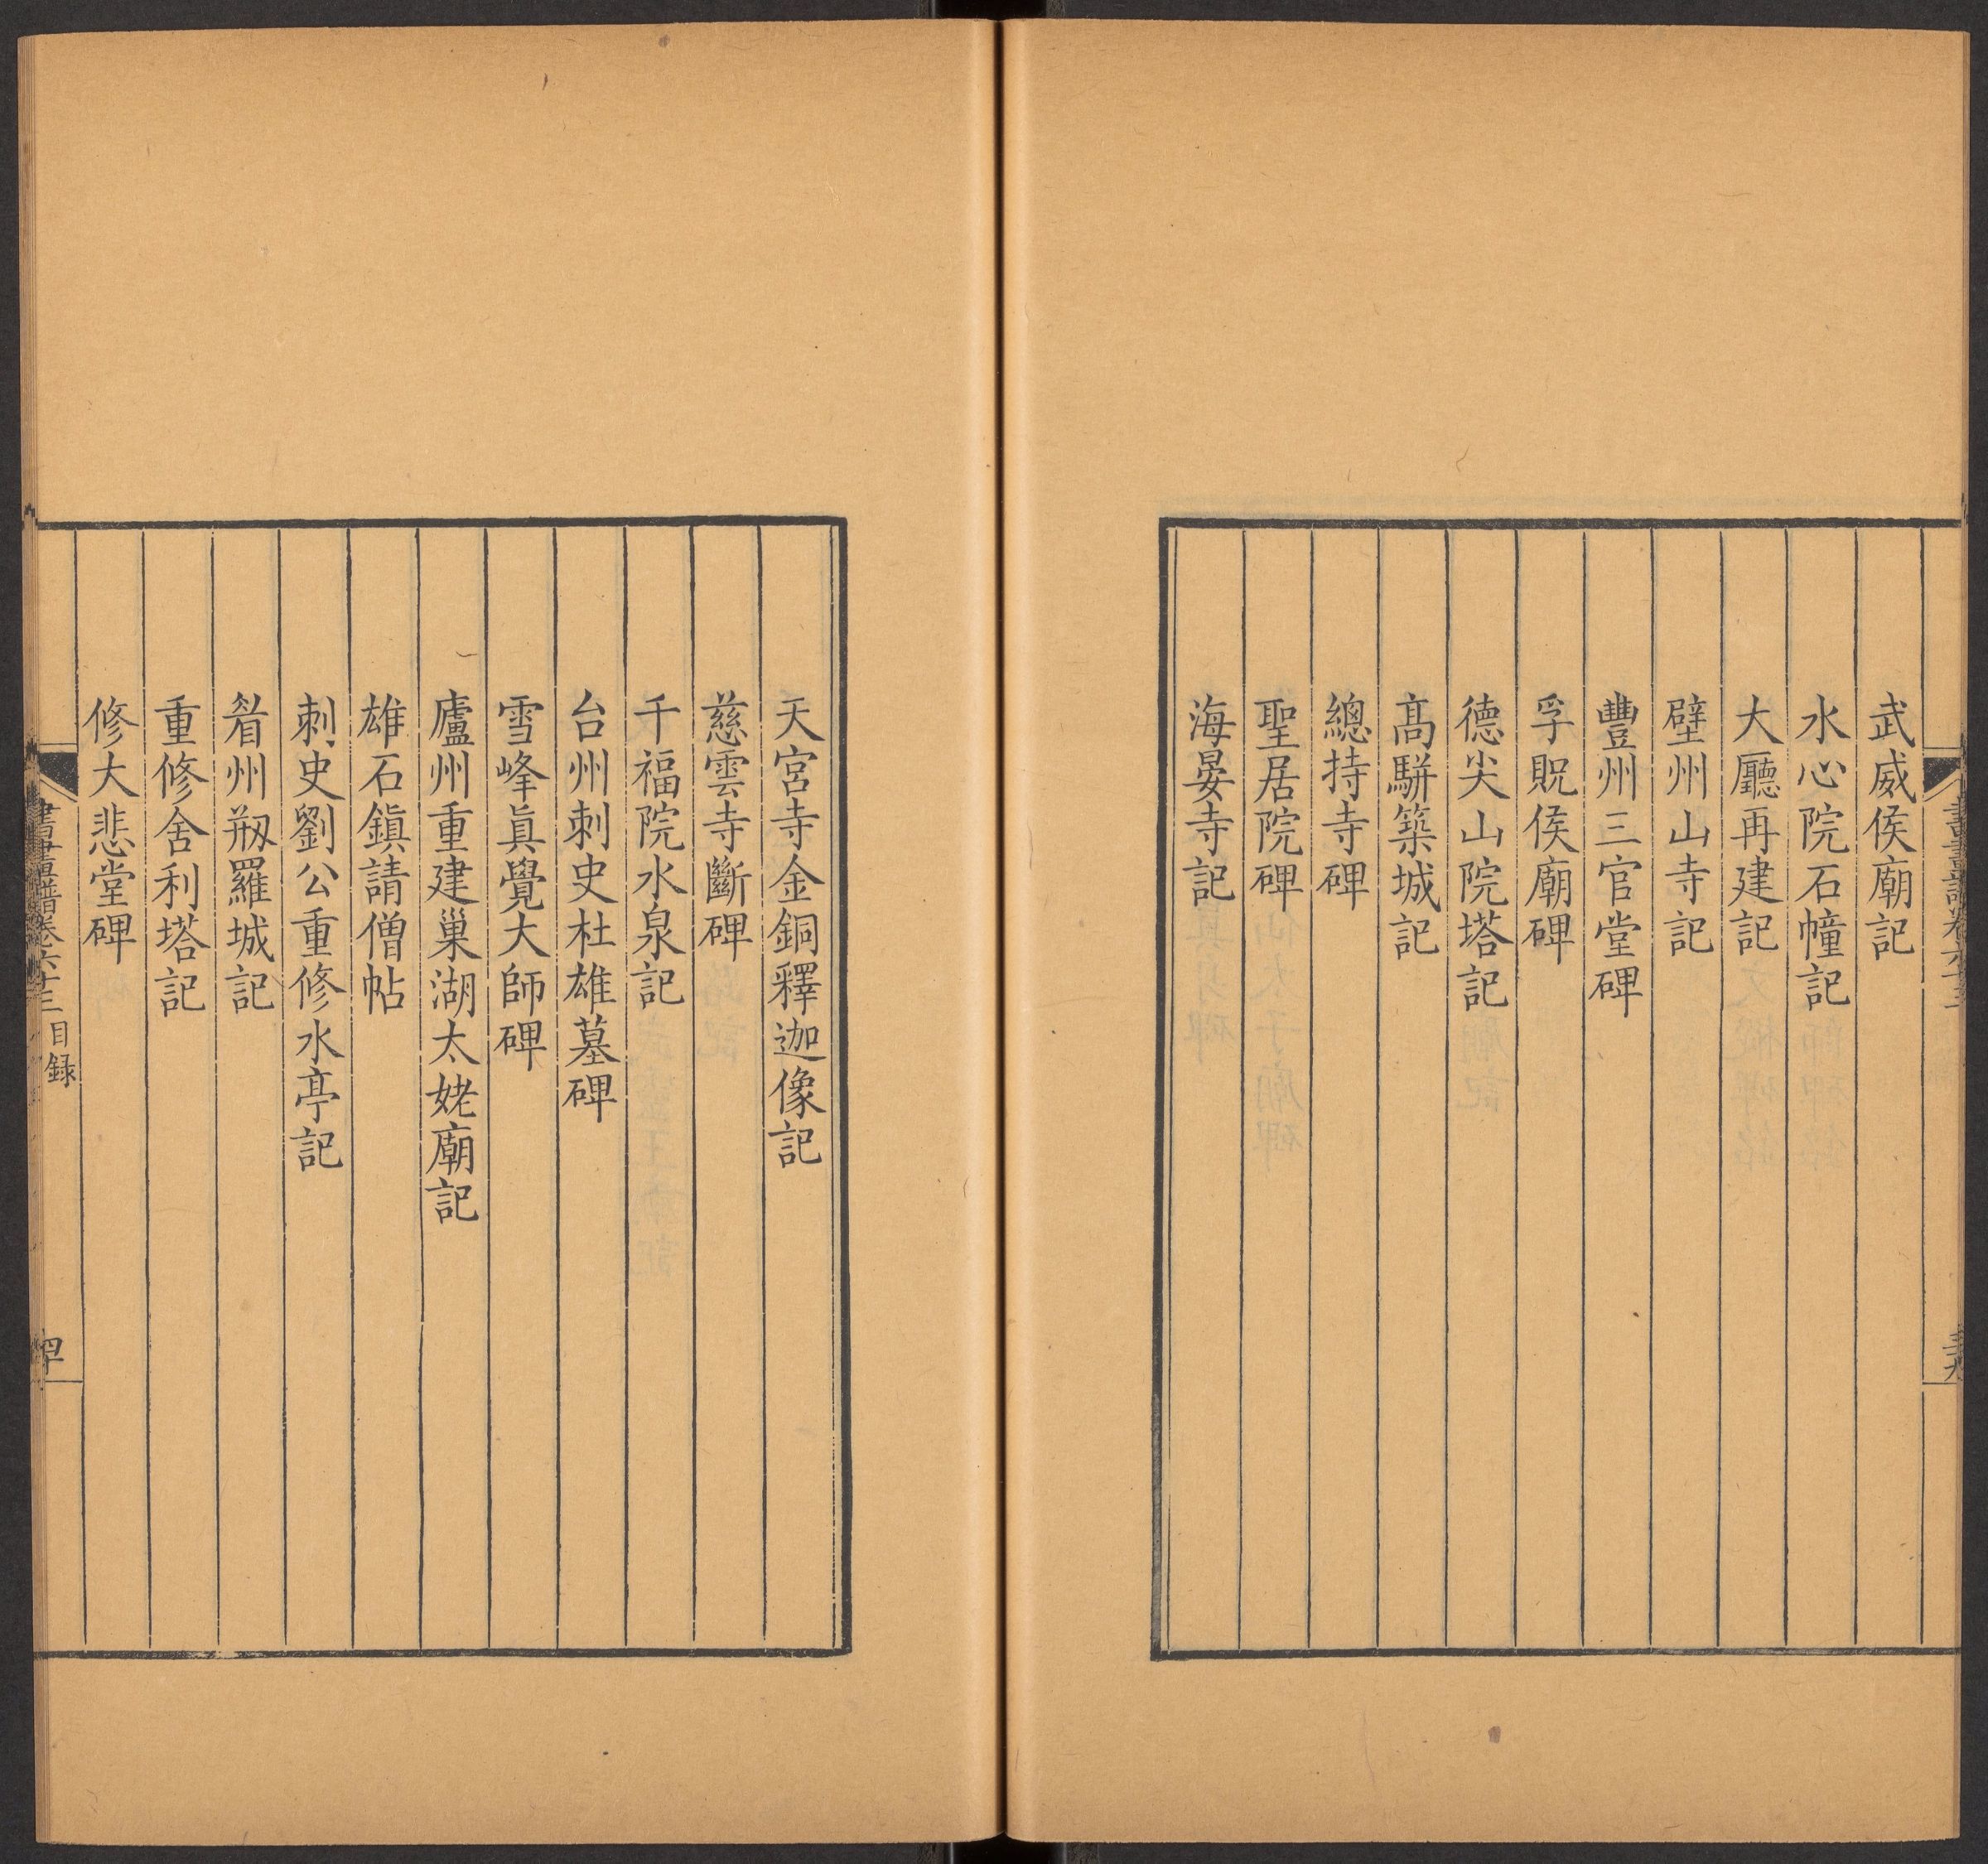 武威侯廟記
水心院石幢記
大廳再建記
壁州山寺記
豐州三官堂碑
孚貺侯廟碑
德尖山院塔記
高駢築城記
總持寺碑
聖居院碑
海晏寺記
天宮寺金銅釋迦像記
慈雲寺斷碑
千福院水泉記
台州刺史杜雄墓碑
雪峰眞覺大師碑
廬州重建巢湖太姥廟記
雄石鎮請僧帖
刺史劉公重修水亭記
眉州剏羅城記
重修舍利塔記
修大悲堂碑
書畫譜卷六十三 目録